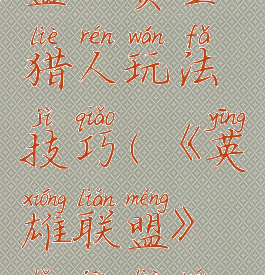 liè rén wán fǎ
猎人玩法
jì qiǎo yīng
技巧(《英
xióng lián méng
雄联盟》